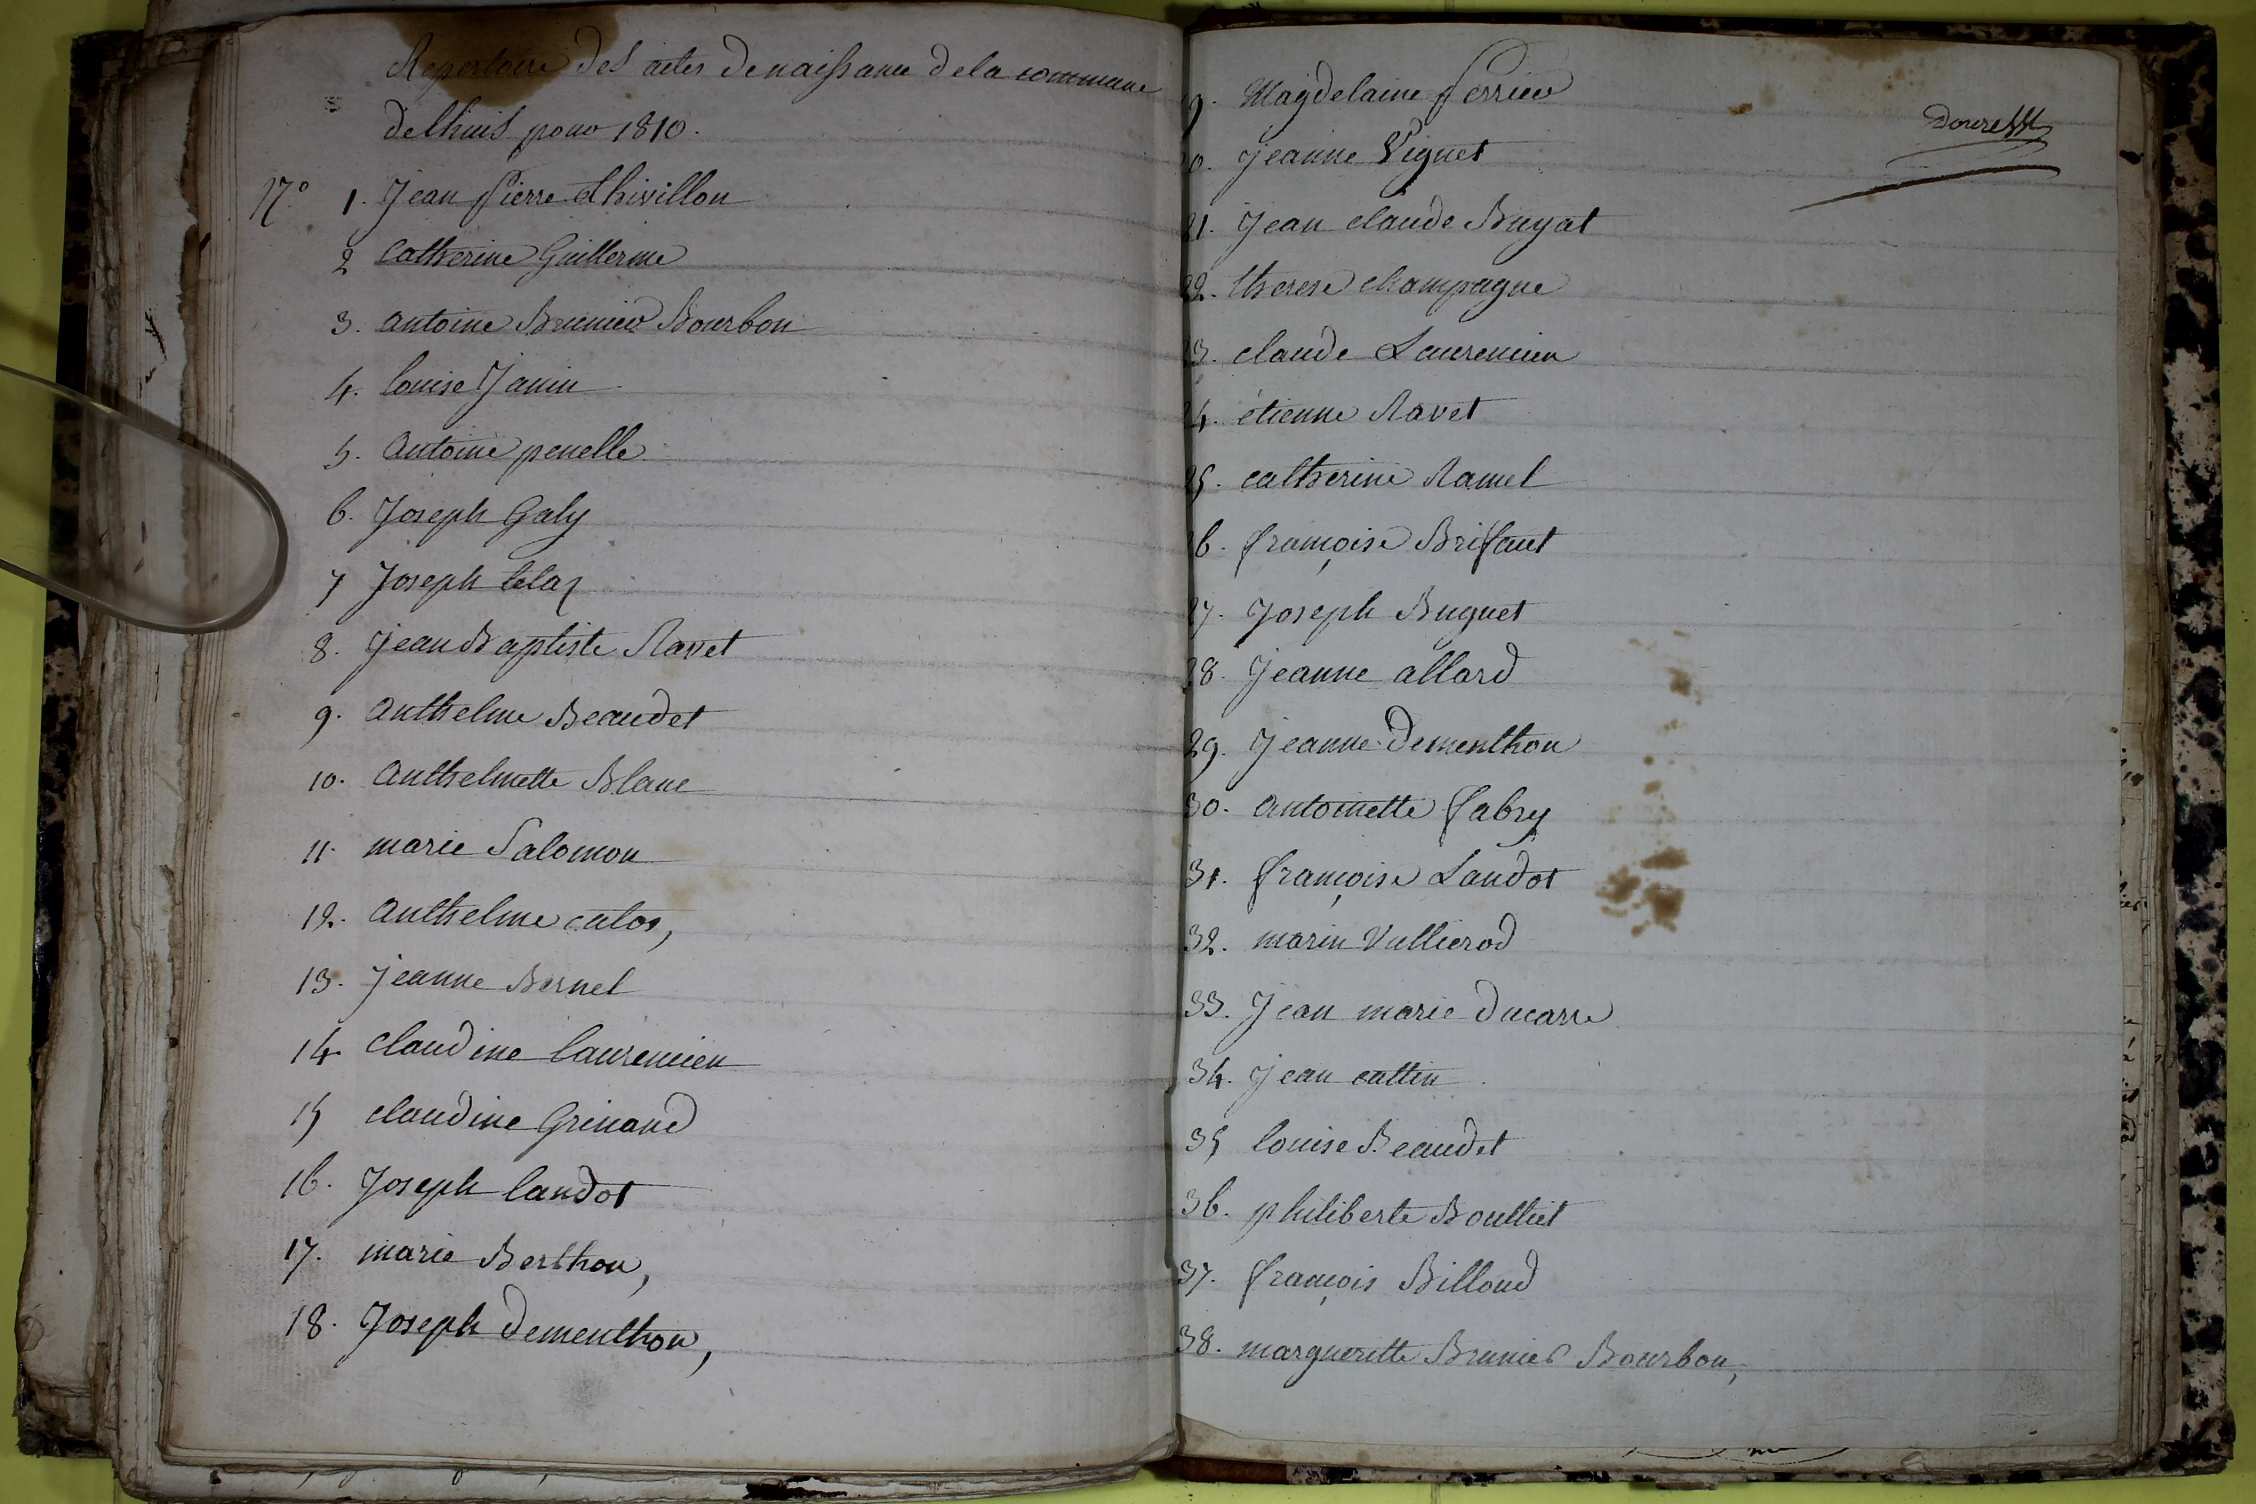 Repertoire des actes de naissance de la commune
de Lhuis pour 1810.
N.° 1. Jean Pierre Thivillon
2 Catherine Guillerme
3. antoine Brunier Bourbon
4. louise Janin
5. antoine penelle
6. Joseph Galy
7 Joseph
8. Jean Baptiste Ravet
9. anthelme Beaudet
10. anthelmette Blanc
11. marie Salomon
12. anthelme
13. Jeanne Bernel
14. claudine laurencien
15 claudine Grinand
16. Joseph landot
17. marie Berthon,
18. Joseph Dementhon,
9. Magdelaine Perrier
0. Jeanne Piguet
21. Jean claude Buyat
22. therese champagne
23. claude Laurencien
24. étienne Ravet
25. catherine Ramel
26. françoise Brifaut
27. Joseph Buguet
28. Jeanne allard
29. Jeanne Dementhon
30. antoinette fabry
31. françoise Landot
32. marin Vullierod
33. Jean marie Ducarre
34. Jean cattin
35 louise Beaudet
36. philiberte Boulliet
37. françois Billoud
38. margueritte Brunier Bourbon,